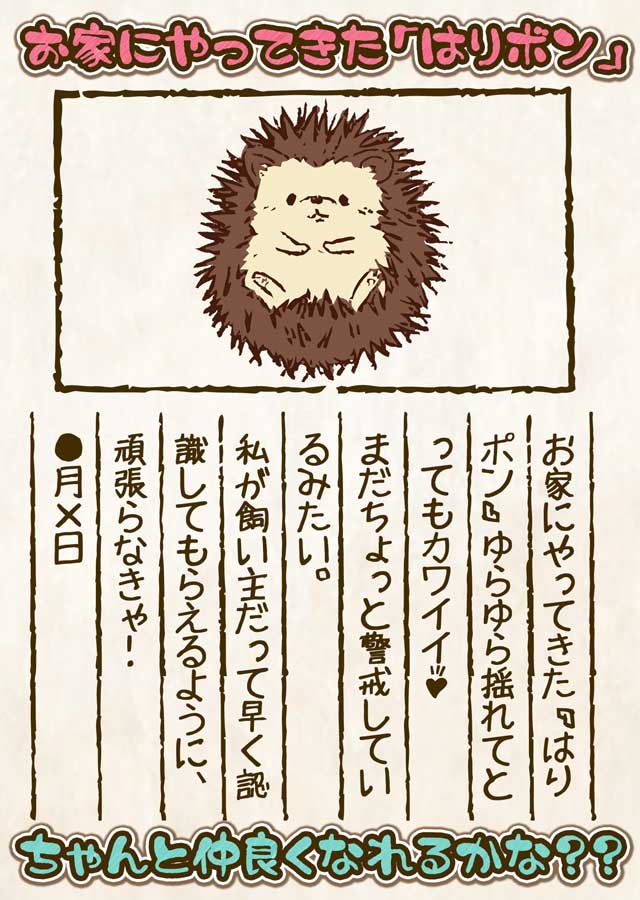 お家にやってきた「はリボン」
お家にやってきた『はり
ポン』ゆらゆら揺れてと
ってもカワイイ!!♥
まだちょっと警戒してい
るみたい。
私が飼い主だって早く認
識してもらえるように、
頑張らなきゃ!
●月×日
ちゃんと仲良くなれるかな??